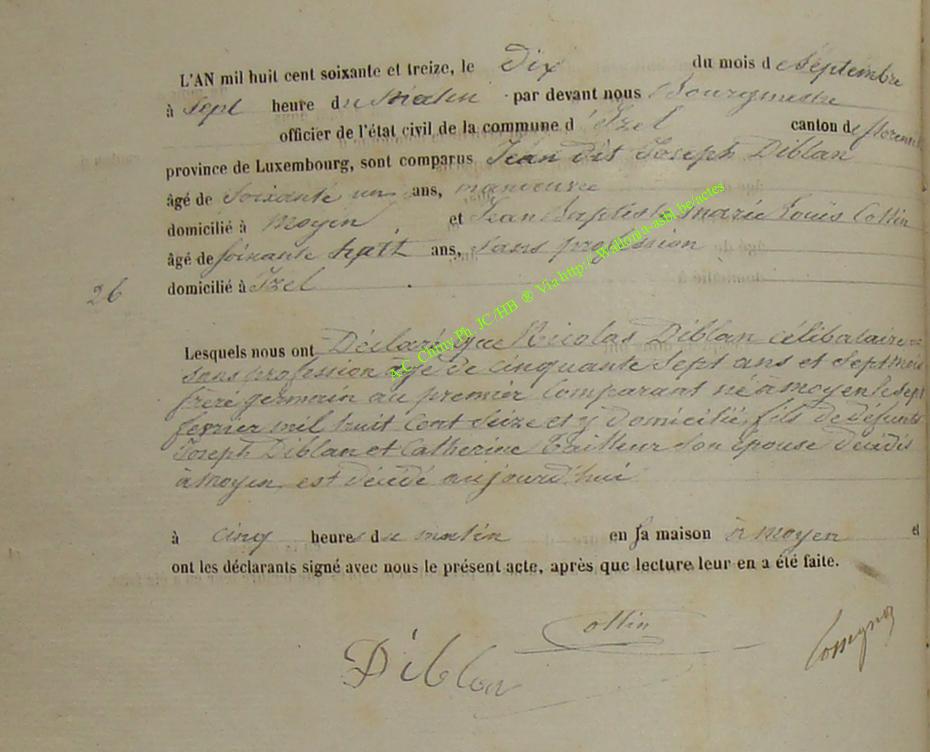 L'AN mil huit cent soixante et treize, le Dix du mois d e Septembre
à Sept heure du Matin par devant nous Bourgmestre
officier de l'état civil de la commune d' Izel canton de florenville
province de Luxembourg, sont comparus Jean dit Joseph Diblan
âgé de Soixante un ans, manoeuvre
domicilié à Moyen et Jean Baptiste marie Louis Collin
âgé de Soixante ans, Sans profession
domicilié à Izel
26
Lesquels nous ont Déclaré que Nicolas Diblan célibataire
sans profession agé de cinquante sept ans et Sept mois
frère germain au premier Comparant né à moyen le Sept
fevrier mil huit Cent Seize et y Domicilié, fils de défunts
Joseph Diblan et Catherine Tailleur Son épouse décédés
à moyen est décédé aujourd'hui
à cinq heures du matin en sa maison à moyen et
ont les déclarants signé avec nous le présent acte, après que lecture leur en a été faite.
Collin
Diblan
A-C. Chiny Ph. JC/HB ® Via http://Wallonia-asbl.be/actes